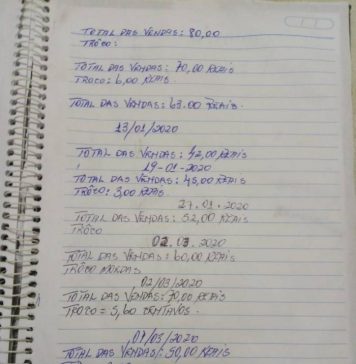 TOTAL DAS VENDAS: 80,00
TRÔCO:
TOTAL DAS VENDAS: 70,00 REAIS
TROCO: 6,00 REAIS
TOTAL DAS VENDAS: 63.00 REAIS.
13/01/2020
TOTAL DAS VENDAS: 42,00 REAIS
19-01-2020
TOTAL DAS VENDAS: 45,00 REAIS
TRÔCO: 3,00 REAIS
27.01.2020
TOTAL DAS VENDAS: 52,00 REAIS
TRÔCO
02.03.2020
TOTAL DAS VENDAS: 60,00 REAIS
TRÔCO MOEDAS
02/03/2020
TOTAL DAS VENDAS: 70,00 REAIS
TROCO = 5,60 CENTAVOS.
07/03/2020
TOTAL DAS VENDAS: 50,00 REAIS